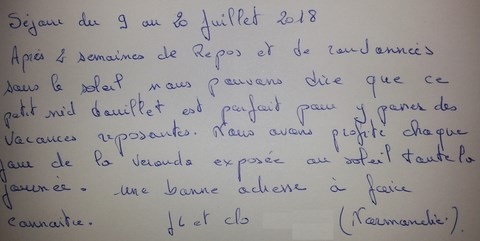 Séjour du 9 au 20 Juillet 2018
Après 2 semaines de Repos et de randonnées
sous le soleil nous pouvons dire que ce
petit nid douillet est parfait pour y passer des
vacances reposantes. Nous avons profité chaque
jour de la veranda exposée au soleil toute la
journée. Une bonne adresse à faire
connaitre. (Normandie).